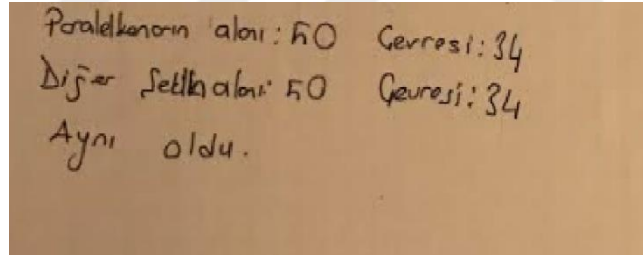 Paralelkenarın alanı: 50 Çevresi: 34
Diğer şeklin alanı: 50 Çevresi: 34
Aynı oldu.